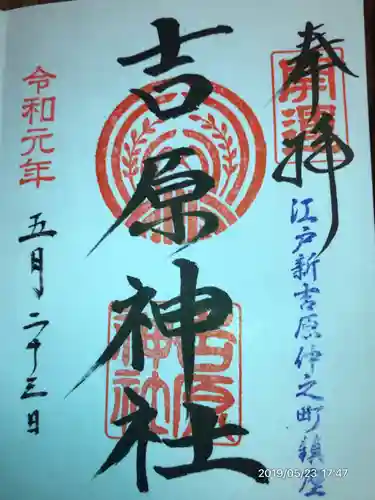 奉拝
開運
江戸新吉原仲之町鎮座
吉原神社
吉原神社
令和元年
五月二十三日
2019/05/23 17:47